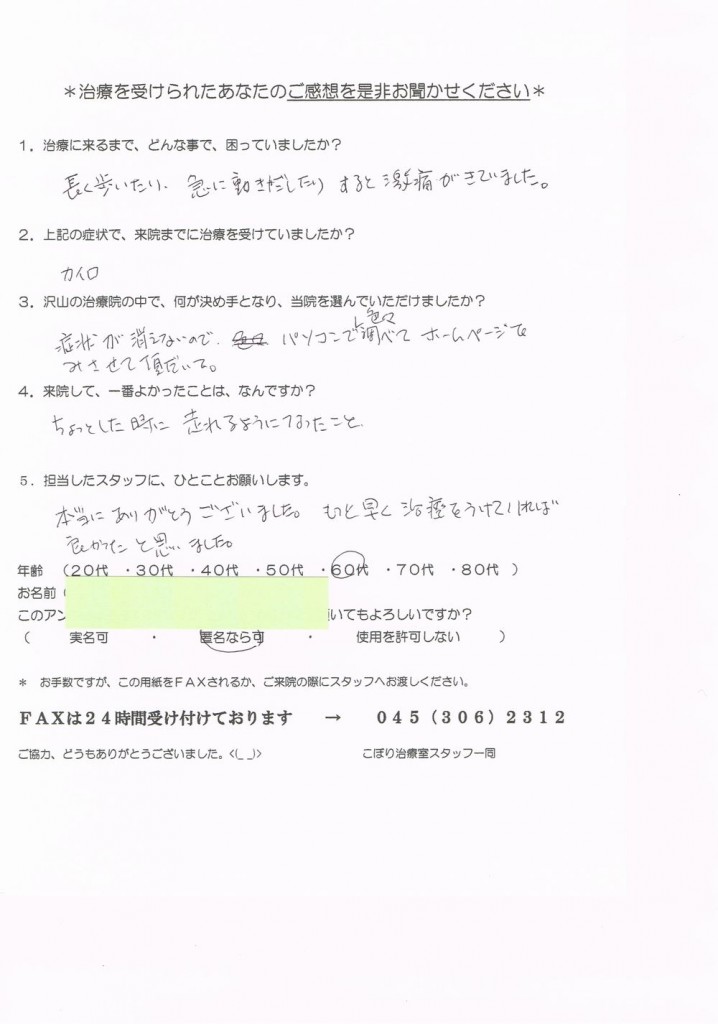 ＊治療を受けられたあなたのご感想を是非お聞かせください＊
１．治療に来るまで、どんな事で、困っていましたか？
長く歩いたり、急に動きだしたりすると激痛がきていました。
２．上記の症状で、来院までに治療を受けていましたか？
カイロ
３．沢山の治療院の中で、何が決め手となり、当院を選んでいただけましたか？
色々
症状が消えないので、色々 パソコンで調べて ホームページを
みさせて頂だいて。
４．来院して、一番よかったことは、なんですか？
ちょっとした時に 走れるようになったこと
５．担当したスタッフに、ひとことお願いします。
本当にありがとうございました。 もっと早く治療をうけていれば
良かったと思いました。
年齢 （２０代 ・３０代 ・４０代 ・５０代 ・６０代 ・７０代 ・８０代 ）
お名前（
このアン 頂いてもよろしいですか？
（ 実名可 ・ 匿名なら可 ・ 使用を許可しない ）
＊ お手数ですが、この用紙をＦＡＸされるか、ご来院の際にスタッフへお渡しください。
ＦＡＸは２４時間受け付けております → ０４５（３０６）２３１２
ご協力、どうもありがとうございました。<(_ _)> こぼり治療室スタッフ一同